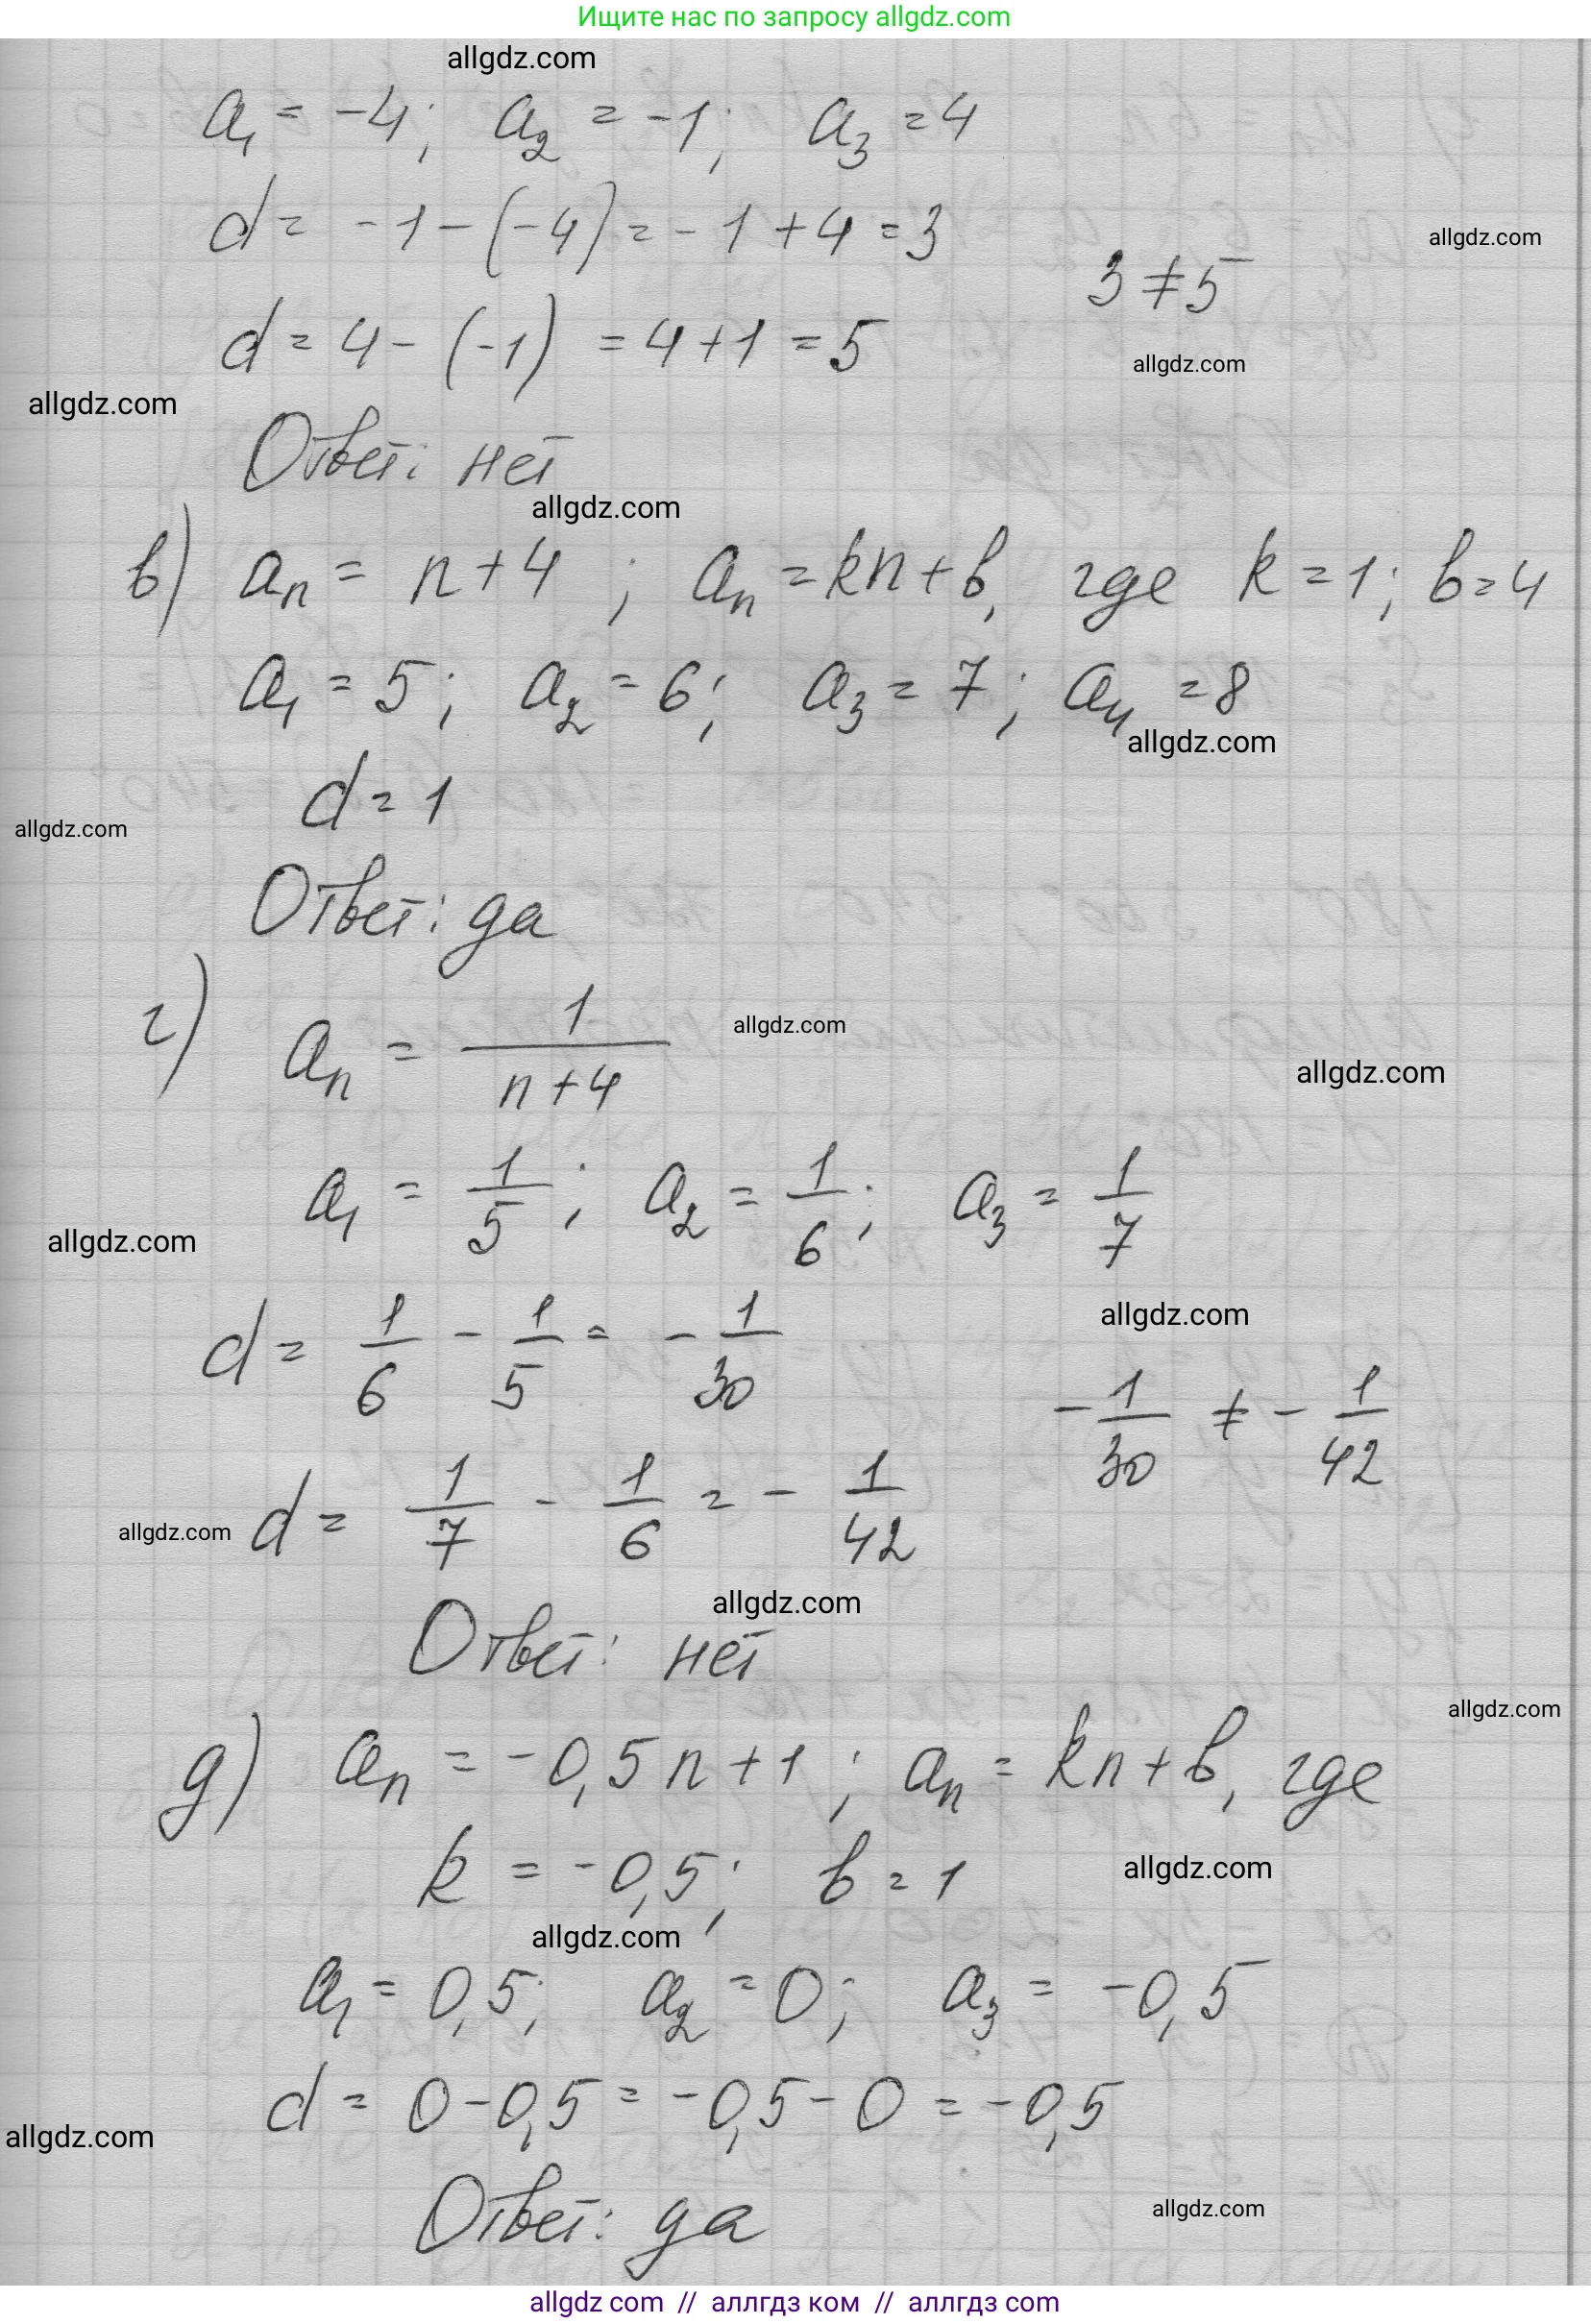 Ищите нас по запросу allgdz.com
allgdz.com
a₁ = -4; a₂ = -1; a₃ = 4
d = -1 - (-4) = -1 + 4 = 3
allgdz.com
3 ≠ 5
d = 4 - (-1) = 4 + 1 = 5
allgdz.com
allgdz.com
Ответ: нет
allgdz.com
в) aₙ = n + 4 ; aₙ = kn + b, где k = 1; b = 4
a₁ = 5; a₂ = 6; a₃ = 7; a₄ = 8
allgdz.com
d = 1
allgdz.com
Ответ: да
г) aₙ = 1/(n + 4)
allgdz.com
allgdz.com
a₁ = 1/5; a₂ = 1/6; a₃ = 1/7
allgdz.com
allgdz.com
d = 1/6 - 1/5 = - 1/30
- 1/30 ≠ - 1/42
d = 1/7 - 1/6 = - 1/42
allgdz.com
allgdz.com
Ответ: нет
allgdz.com
д) aₙ = -0,5n + 1 ; aₙ = kn + b, где
k = -0,5; b = 1
allgdz.com
allgdz.com
a₁ = 0,5; a₂ = 0; a₃ = -0,5
d = 0 - 0,5 = -0,5 - 0 = -0,5
allgdz.com
Ответ: да
allgdz.com
allgdz com // аллгдз ком // аллгдз com